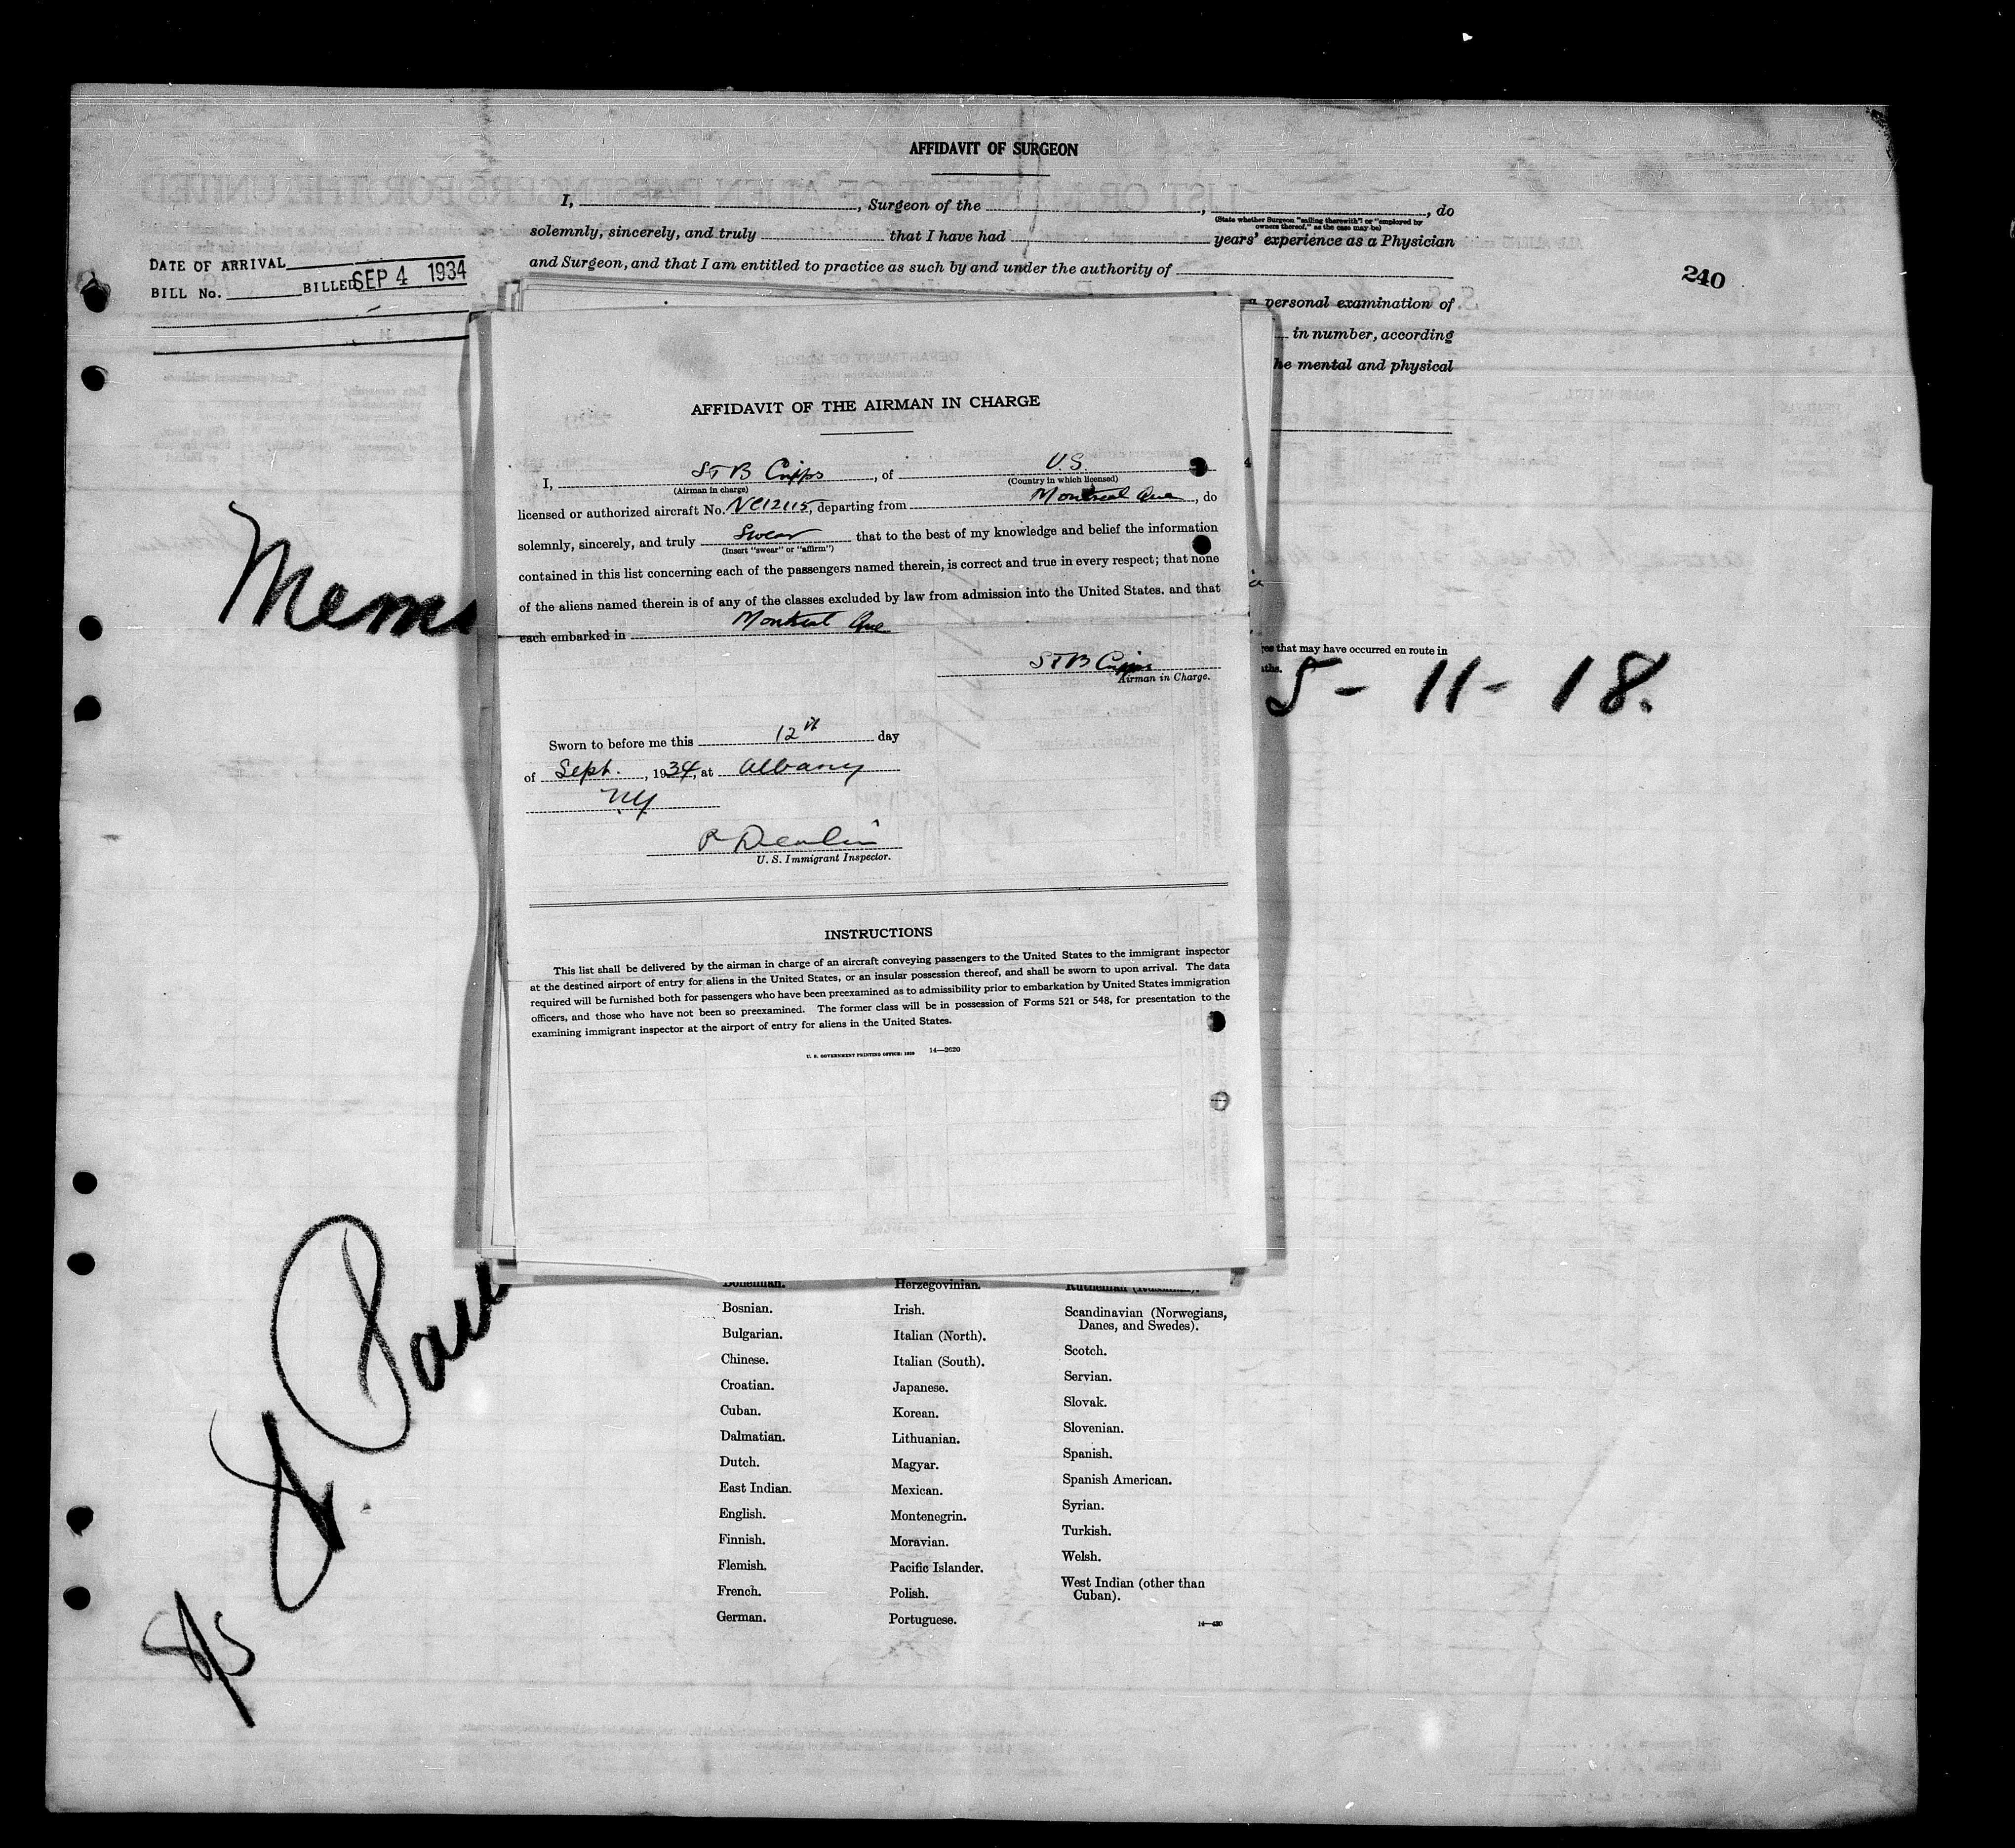 AFFIDAVIT OF SURGEON
I, , Surgeon of the , , do
(State whether Surgeon "sailing therewith" or "employed by
owners thereof," as the case may be)
solemnly, sincerely, and truly that I have had years' experience as a Physician
and Surgeon, and that I am entitled to practice as such by and under the authority of
DATE OF ARRIVAL
BILL No. BILLED SEP 4 1934
240
a personal examination of
in number, according
he mental and physical
AFFIDAVIT OF THE AIRMAN IN CHARGE
I, STB Cripps, of U.S.
(Airman in charge) (Country in which licensed)
licensed or authorized aircraft No. NC12115, departing from Montreal Que, do
solemnly, sincerely, and truly Swear that to the best of my knowledge and belief the information
(Insert "swear" or "affirm")
contained in this list concerning each of the passengers named therein, is correct and true in every respect; that none
of the aliens named therein is of any of the classes excluded by law from admission into the United States, and that
each embarked in Montreal Que
STB Cripps
Airman in Charge.
Sworn to before me this 12th day
of Sept., 1934, at Albany
N.Y.
P. Devlin
U. S. Immigrant Inspector.
INSTRUCTIONS
This list shall be delivered by the airman in charge of an aircraft conveying passengers to the United States to the immigrant inspector
at the destined airport of entry for aliens in the United States, or an insular possession thereof, and shall be sworn to upon arrival. The data
required will be furnished both for passengers who have been preexamined as to admissibility prior to embarkation by United States immigration
officers, and those who have not been so preexamined. The former class will be in possession of Forms 521 or 548, for presentation to the
examining immigrant inspector at the airport of entry for aliens in the United States.
U. S. GOVERNMENT PRINTING OFFICE: 14—2620
Mem
es that may have occurred en route in
5 - 11 - 18.
Bohemian.
Bosnian.
Bulgarian.
Chinese.
Croatian.
Cuban.
Dalmatian.
Dutch.
East Indian.
English.
Finnish.
Flemish.
French.
German.
Herzegovinian.
Irish.
Italian (North).
Italian (South).
Japanese.
Korean.
Lithuanian.
Magyar.
Mexican.
Montenegrin.
Moravian.
Pacific Islander.
Polish.
Portuguese.
Ruthenian (Russniak).
Scandinavian (Norwegians,
Danes, and Swedes).
Scotch.
Servian.
Slovak.
Slovenian.
Spanish.
Spanish American.
Syrian.
Turkish.
Welsh.
West Indian (other than
Cuban).
14—430
S/S St. Pau